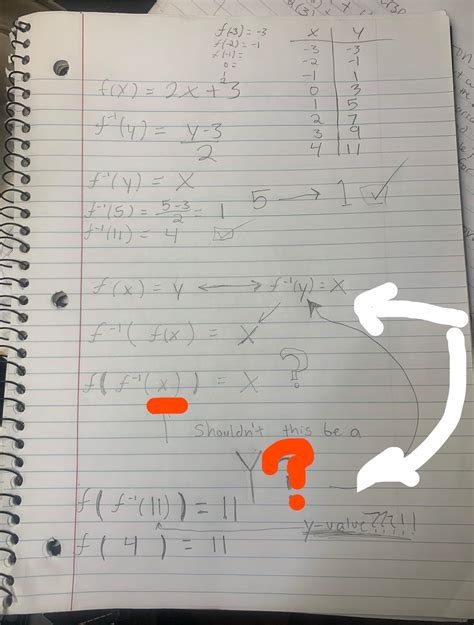 f(-3) = -3
f(-2) = -1
f(-1) =
0 =
1
x y
-3 -3
-2 -1
-1 1
0 3
1 5
2 7
3 9
4 11
f(x) = 2x + 3
f⁻¹(y) = y-3
2
f⁻¹(y) = x
5 → 1 ☑
f⁻¹(5) = 5-3/2 = 1
f⁻¹(11) = 4 ☑
f(x) = y ↔ f⁻¹(y) = x
f⁻¹( f(x) = x
f( f⁻¹(x) ) = x ?
Shouldn't this be a
Y ?
f( f⁻¹(11) ) = 11
y-value???!!!
f( 4 ) = 11